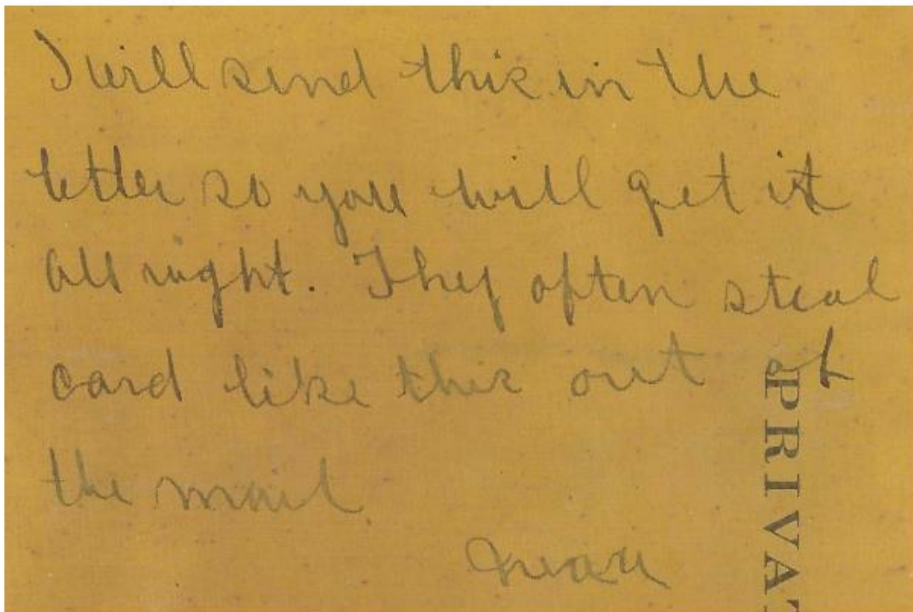 I will send this in the
letter so you will get it
all right. They often steal
card like this out of
the mail
PRIVAT